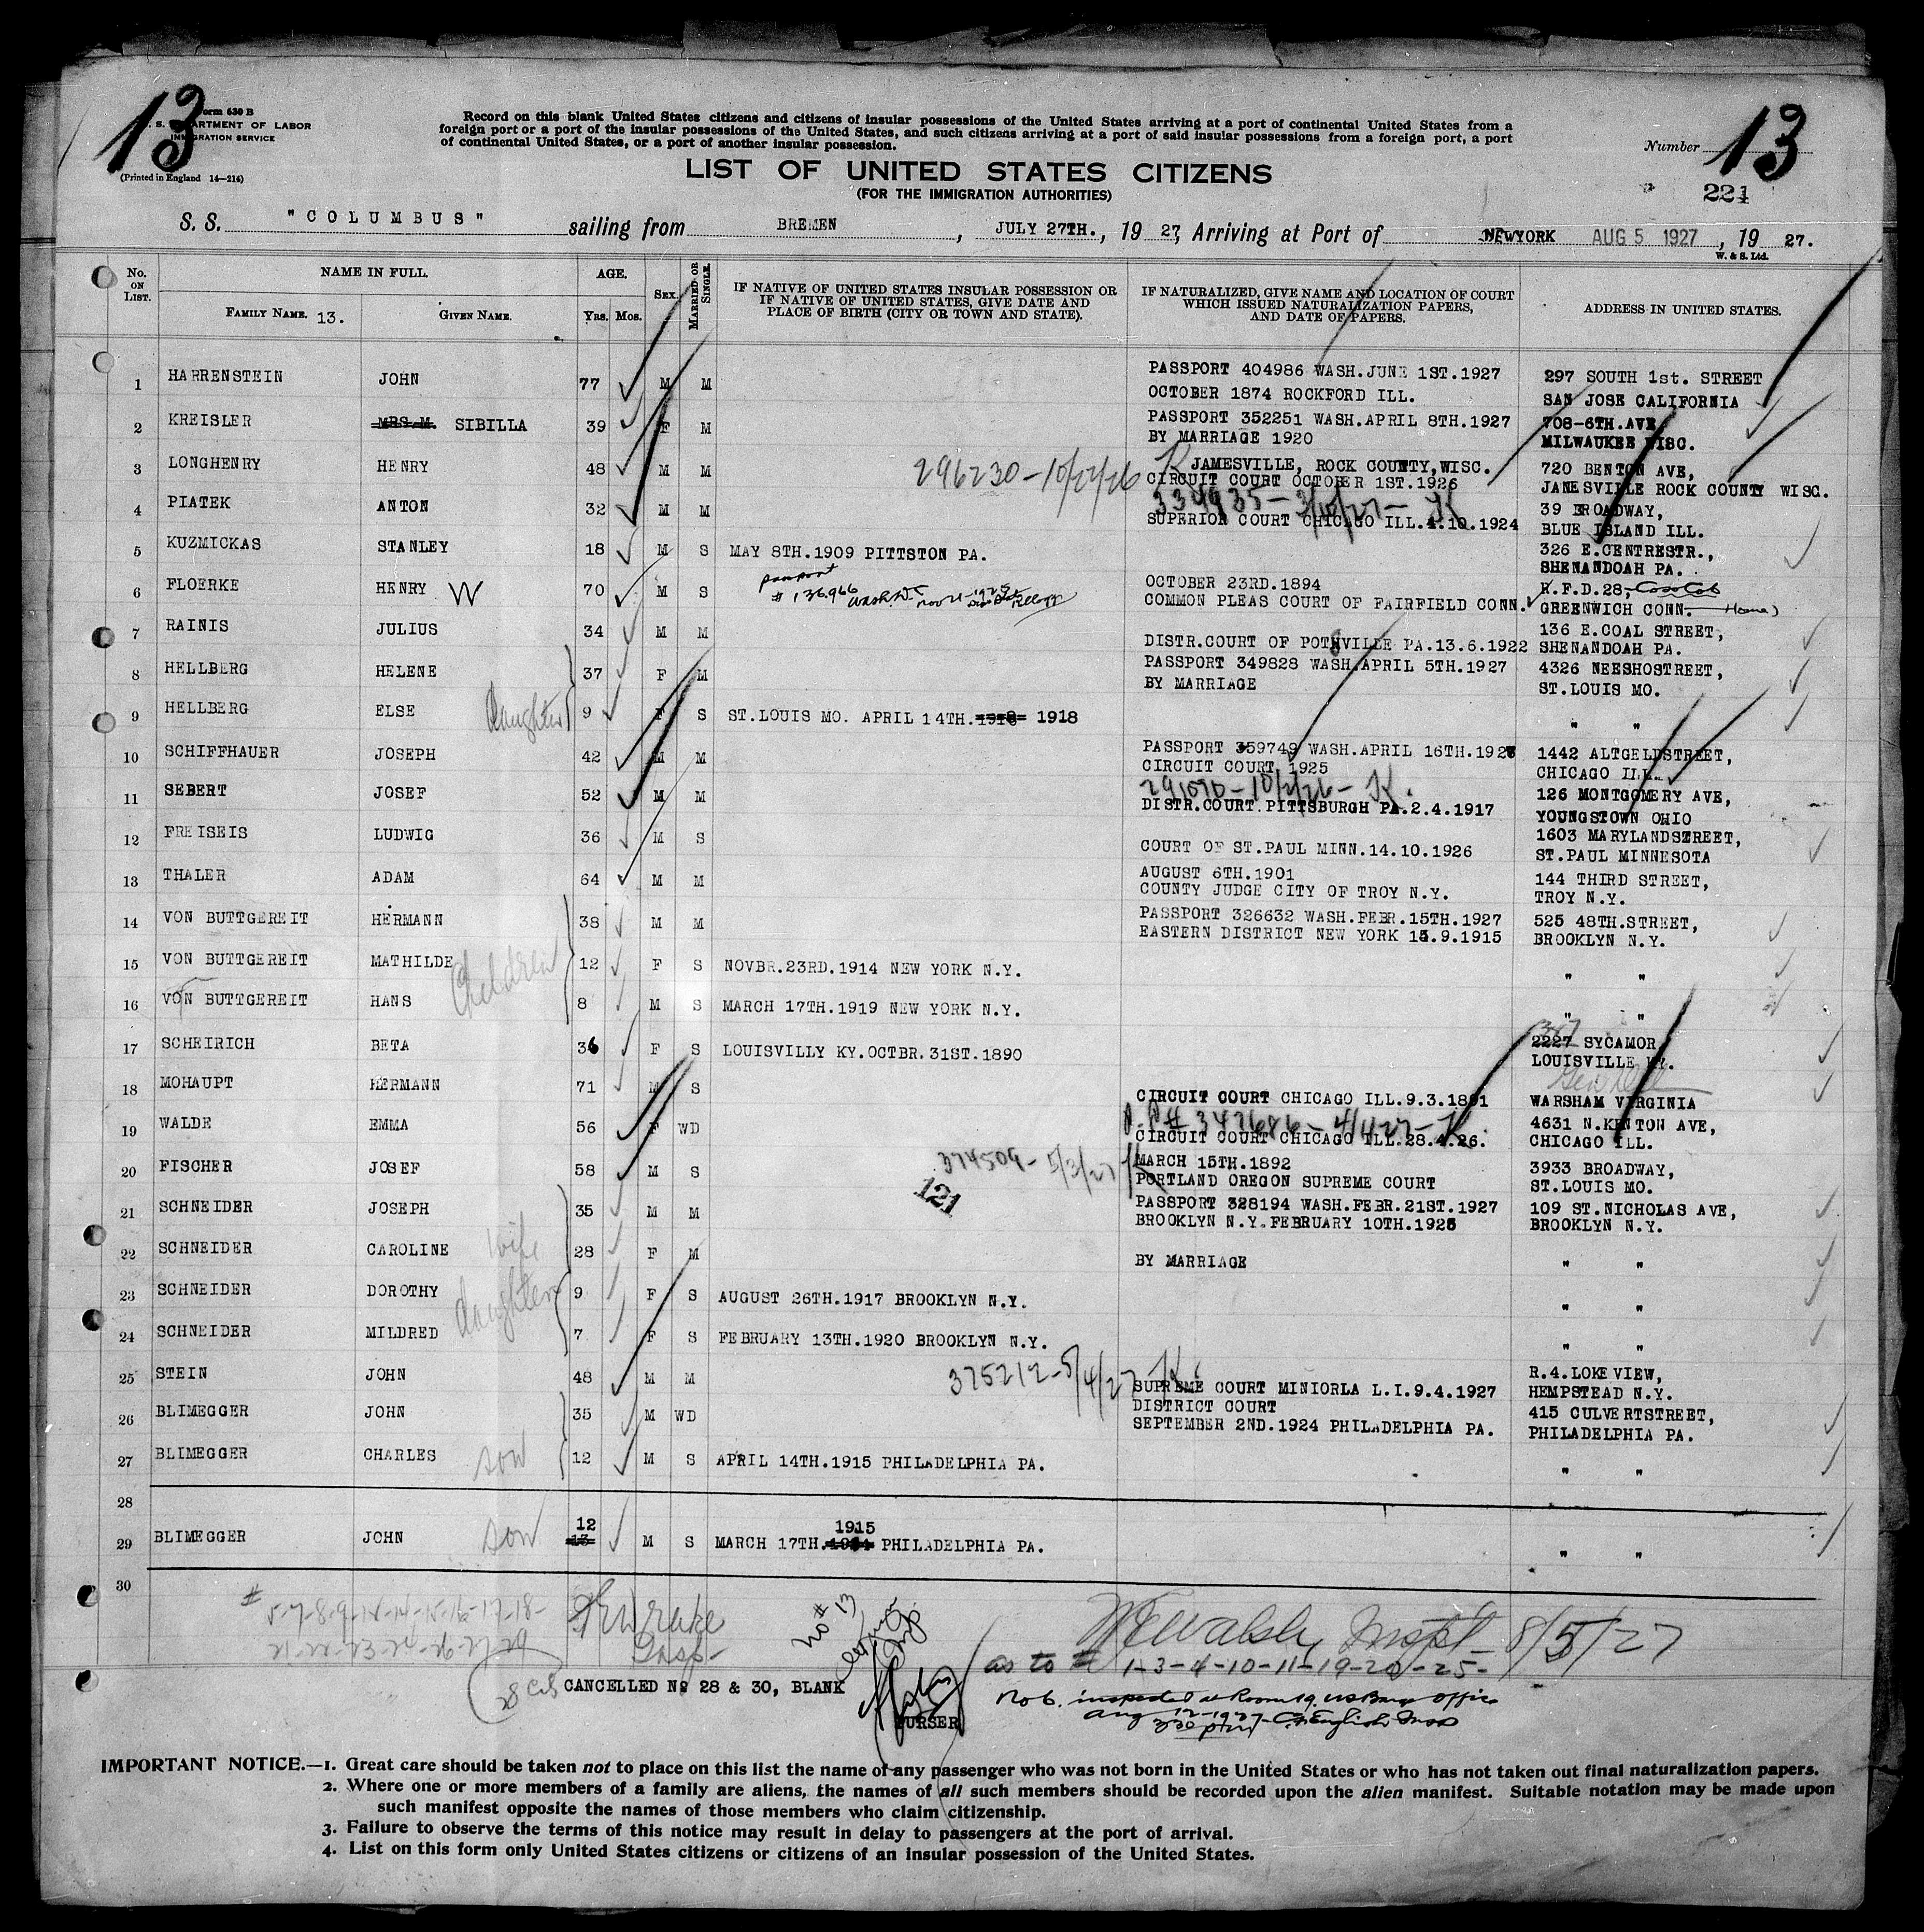 13
Form 630 B
U. S. DEPARTMENT OF LABOR
IMMIGRATION SERVICE
(Printed in England 14—214)
Record on this blank United States citizens and citizens of insular possessions of the United States arriving at a port of continental United States from a
foreign port or a port of the insular possessions of the United States, and such citizens arriving at a port of said insular possessions from a foreign port, a port
of continental United States, or a port of another insular possession.
Number 13
221
LIST OF UNITED STATES CITIZENS
(FOR THE IMMIGRATION AUTHORITIES)
S.S. "COLUMBUS" sailing from BREMEN, JULY 27TH., 19 27, Arriving at Port of NEWYORK AUG 5 1927, 19 27.
W. & S. Ltd.
No. ON LIST. NAME IN FULL. AGE. SEX. MARRIED OR SINGLE. IF NATIVE OF UNITED STATES INSULAR POSSESSION OR IF NATIVE OF UNITED STATES, GIVE DATE AND PLACE OF BIRTH (CITY OR TOWN AND STATE). IF NATURALIZED, GIVE NAME AND LOCATION OF COURT WHICH ISSUED NATURALIZATION PAPERS, AND DATE OF PAPERS. ADDRESS IN UNITED STATES.
FAMILY NAME. 13. GIVEN NAME. Yrs. Mos.
1 HARRENSTEIN JOHN 77 M M PASSPORT 404986 WASH.JUNE 1ST.1927 297 SOUTH 1st. STREET
OCTOBER 1874 ROCKFORD ILL. SAN JOSE CALIFORNIA
2 KREISLER MRS.M. SIBILLA 39 F M PASSPORT 352251 WASH.APRIL 8TH.1927 708-6TH.AVE,
BY MARRIAGE 1920 MILWAUKEE WISC.
3 LONGHENRY HENRY 48 M M 296230-10/22/26 K JAMESVILLE, ROCK COUNTY,WISC. 720 BENTON AVE,
CIRCUIT COURT OCTOBER 1ST.1926 JANESVILLE ROCK COUNTY WISC.
4 PIATEK ANTON 32 M M 334935-3/10/27- K 39 BROADWAY,
SUPERIOR COURT CHICAGO ILL.4.10.1924 BLUE ISLAND ILL.
5 KUZMICKAS STANLEY 18 M S MAY 8TH.1909 PITTSTON PA. 326 E.CENTRESTR.,
SHENANDOAH PA.
6 FLOERKE HENRY W 70 M S passport OCTOBER 23RD.1894 R.F.D.28, Cos Cob
# 136966 Wash. D.C. Nov 21-1925 Kellogg COMMON PLEAS COURT OF FAIRFIELD CONN. GREENWICH CONN. Home)
7 RAINIS JULIUS 34 M M DISTR.COURT OF POTHVILLE PA.13.6.1922 136 E.COAL STREET,
SHENANDOAH PA.
8 HELLBERG HELENE 37 F M PASSPORT 349828 WASH.APRIL 5TH.1927 4326 NEESHOSTREET,
BY MARRIAGE ST.LOUIS MO.
9 HELLBERG ELSE daughter 9 F S ST.LOUIS MO. APRIL 14TH.1918 1918 " "
10 SCHIFFHAUER JOSEPH 42 M M PASSPORT 359748 WASH.APRIL 16TH.1927 1442 ALTGELDSTREET,
CIRCUIT COURT 1925 CHICAGO ILL.
11 SEBERT JOSEF 52 M M K. 126 MONTGOMERY AVE,
DISTR.COURT PITTSBURGH PA.2.4.1917 YOUNGSTOWN OHIO
12 FREISEIS LUDWIG 36 M S COURT OF ST.PAUL MINN.14.10.1926 1603 MARYLANDSTREET,
ST.PAUL MINNESOTA
13 THALER ADAM 64 M M AUGUST 6TH.1901 144 THIRD STREET,
COUNTY JUDGE CITY OF TROY N.Y. TROY N.Y.
14 VON BUTTGEREIT HERMANN 38 M M PASSPORT 326632 WASH.FEBR.15TH.1927 525 48TH.STREET,
EASTERN DISTRICT NEW YORK 15.9.1915 BROOKLYN N.Y.
15 VON BUTTGEREIT MATHILDE Children 12 F S NOVBR.23RD.1914 NEW YORK N.Y. " "
16 VON BUTTGEREIT HANS 8 M S MARCH 17TH.1919 NEW YORK N.Y. " "
17 SCHEIRICH BETA 36 F S LOUISVILLY KY.OCTBR.31ST.1890 2227 SYCAMOR
LOUISVILLE KY.
18 MOHAUPT HERMANN 71 M S CIRCUIT COURT CHICAGO ILL.9.3.1891 WARSHAM VIRGINIA
19 WALDE EMMA 56 F WD # 347686-4/4/27-K. 4631 N.KENTON AVE,
CIRCUIT COURT CHICAGO ILL.28.4.26. CHICAGO ILL.
20 FISCHER JOSEF 58 M S 374509-5/3/27 K MARCH 15TH.1892 3933 BROADWAY,
PORTLAND OREGON SUPREME COURT ST.LOUIS MO.
121
21 SCHNEIDER JOSEPH 35 M M PASSPORT 328194 WASH.FEBR.21ST.1927 109 ST.NICHOLAS AVE,
BROOKLYN N.Y.FEBRUARY 10TH.1925 BROOKLYN N.Y.
22 SCHNEIDER CAROLINE wife 28 F M BY MARRIAGE " "
23 SCHNEIDER DOROTHY daughters 9 F S AUGUST 26TH.1917 BROOKLYN N.Y. " "
24 SCHNEIDER MILDRED 7 F S FEBRUARY 13TH.1920 BROOKLYN N.Y. " "
25 STEIN JOHN 48 M M 375212-5/4/27 K. R.4.LOKEVIEW,
SUPREME COURT MINIORLA L.I.9.4.1927 HEMPSTEAD N.Y.
26 BLIMEGGER JOHN 35 M WD DISTRICT COURT 415 CULVERTSTREET,
SEPTEMBER 2ND.1924 PHILADELPHIA PA. PHILADELPHIA PA.
27 BLIMEGGER CHARLES son 12 M S APRIL 14TH.1915 PHILADELPHIA PA. " "
28
12 1915
29 BLIMEGGER JOHN son 13 M S MARCH 17TH.1914 PHILADELPHIA PA. " "
30
No # 13
Insp-
Walsh, Insp't- 8/5/27
as to # 1-3-4-10-11-19-20-25-
28 CANCELLED No 28 & 30, BLANK
PURSER
No 6. inspected at Room 19. US Barge Office
Aug 12-1927-
3 30 pm English Insp
IMPORTANT NOTICE.—1. Great care should be taken not to place on this list the name of any passenger who was not born in the United States or who has not taken out final naturalization papers.
2. Where one or more members of a family are aliens, the names of all such members should be recorded upon the alien manifest. Suitable notation may be made upon
such manifest opposite the names of those members who claim citizenship.
3. Failure to observe the terms of this notice may result in delay to passengers at the port of arrival.
4. List on this form only United States citizens or citizens of an insular possession of the United States.